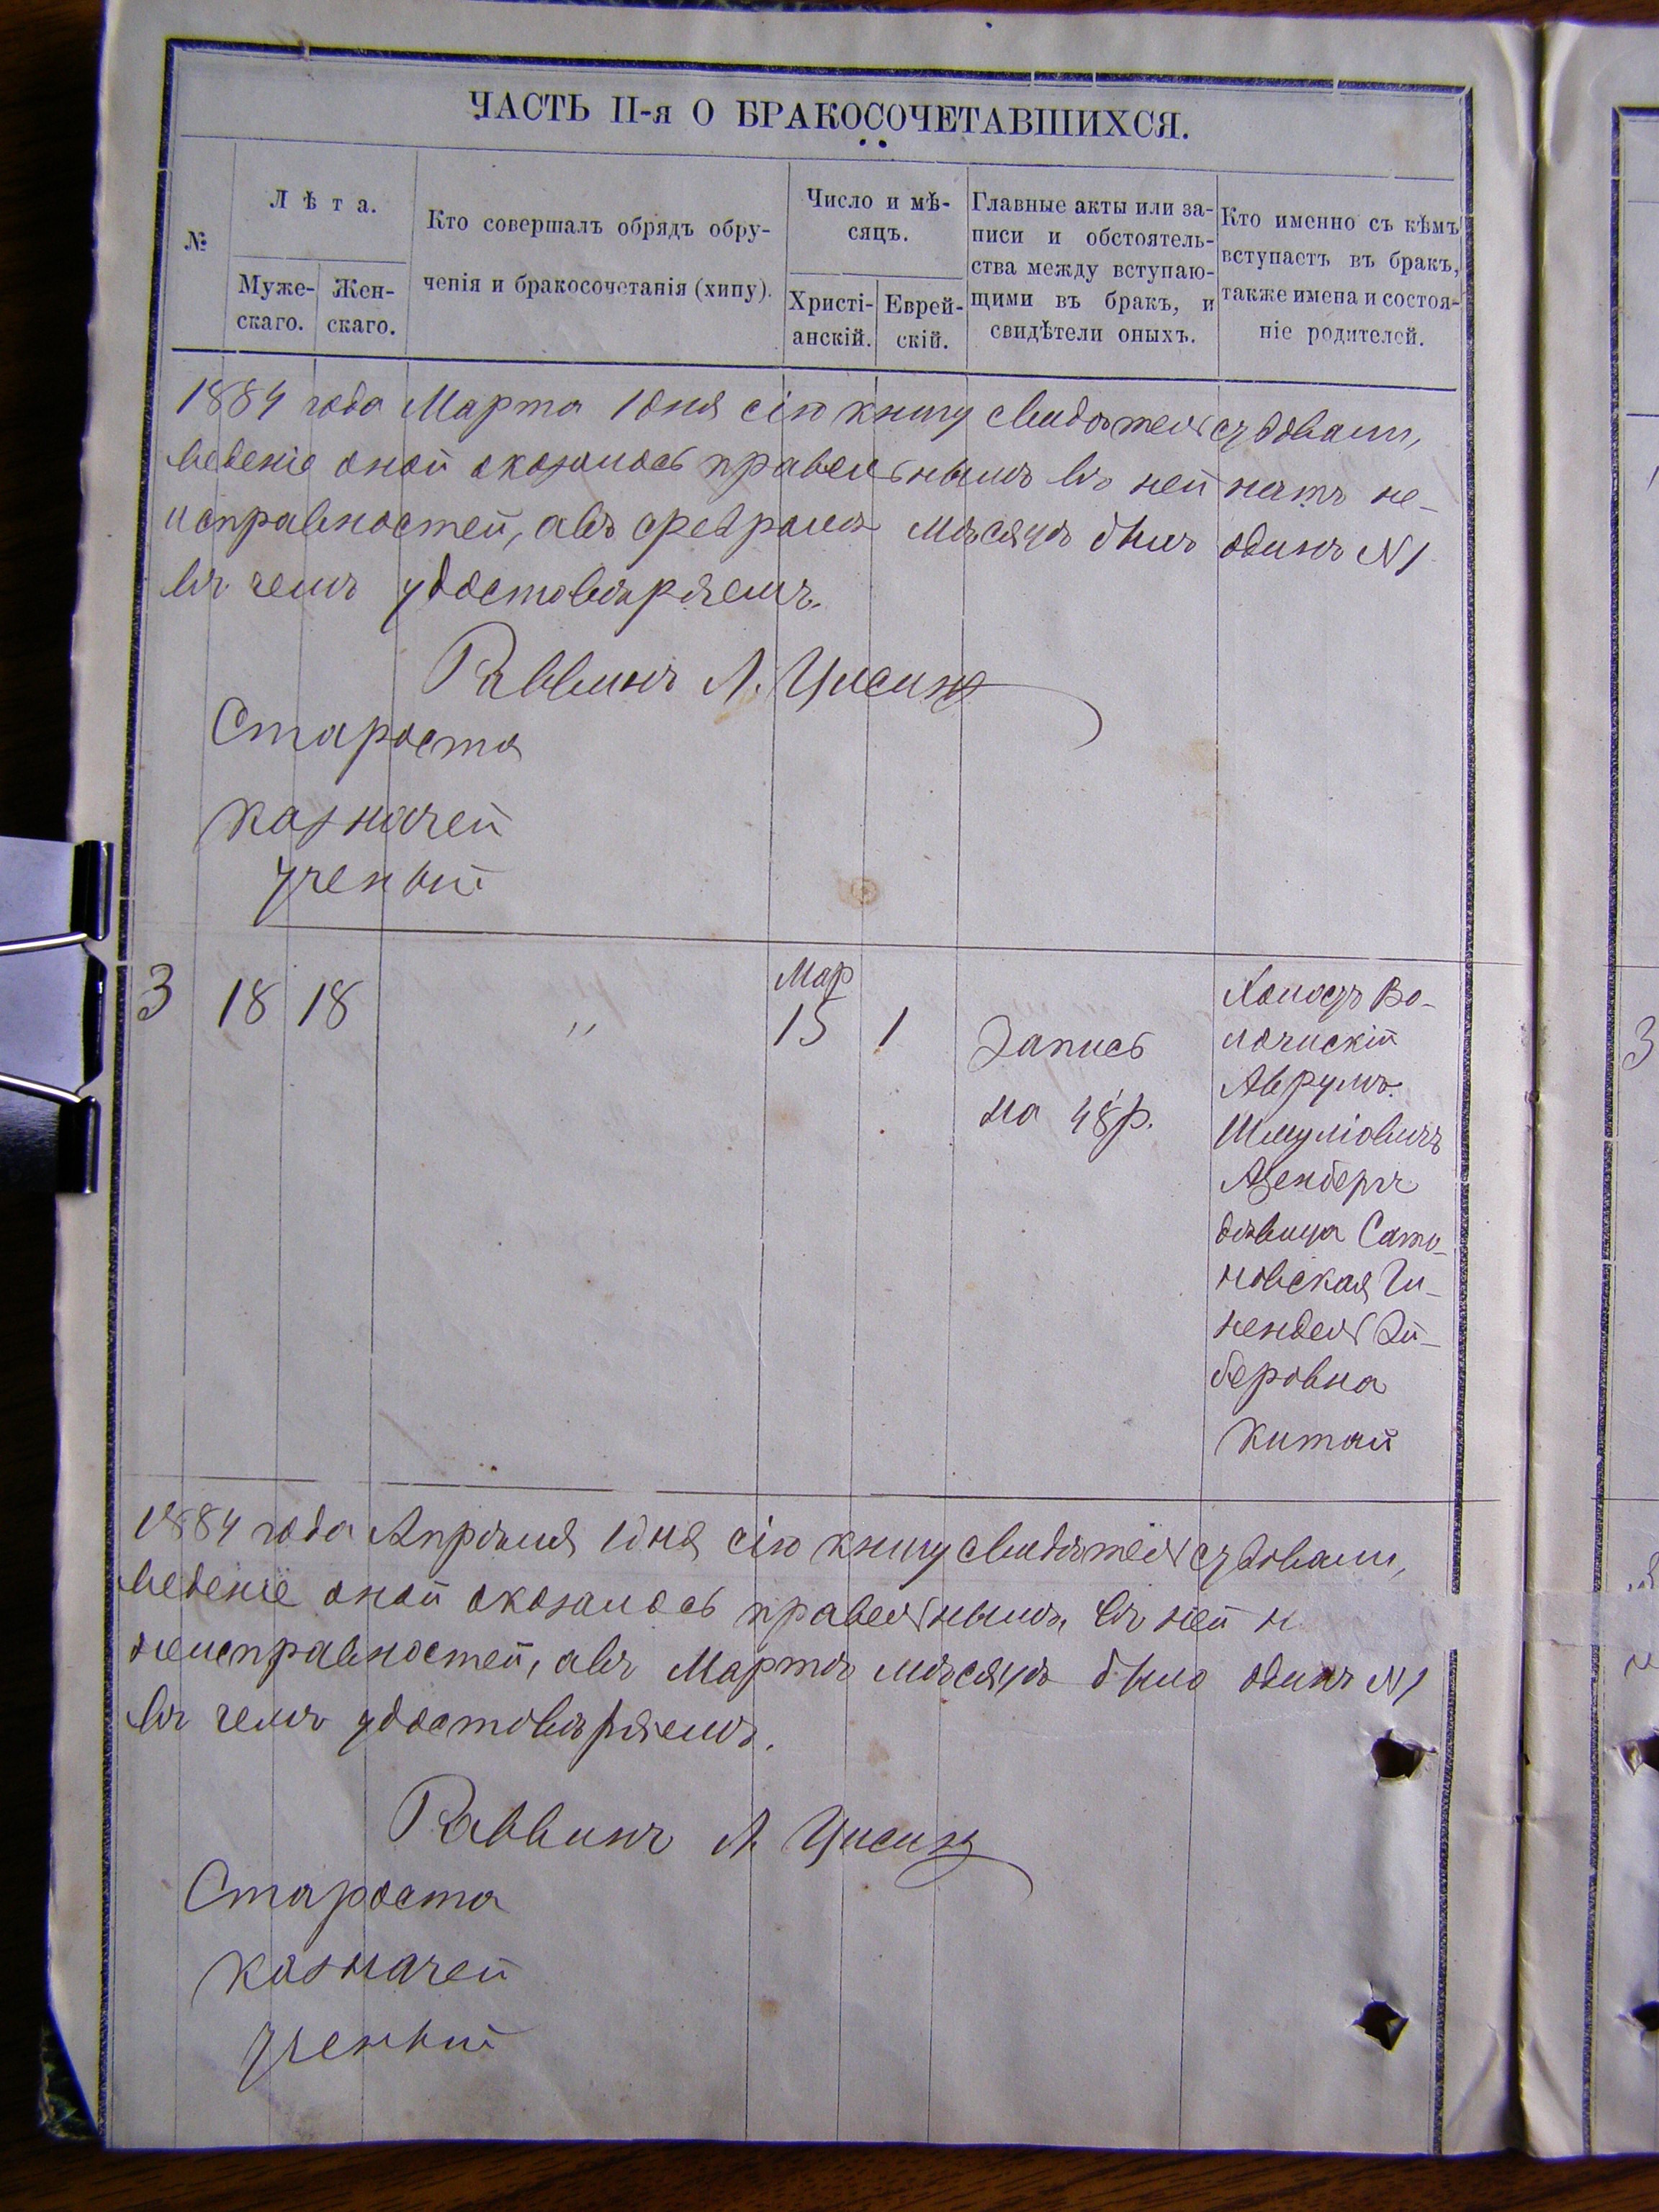 ЧАСТЬ II-я О БРАКОСОЧЕТАВШИХСЯ.
№
Лѣта.
Муже-
скаго.
Жен-
скаго.
Кто совершалъ обрядъ обру-
ченія и бракосочетанія (хипу).
Число и мѣ-
сяцъ.
Христі-
анскій.
Еврей-
скій.
Главные акты или за-
писи и обстоятель-
ства между вступаю-
щими въ бракъ, и
свидѣтели оныхъ.
Кто именно съ кѣмъ
вступаетъ въ бракъ,
также имена и состоя-
ніе родителей.
1884 года Марта 1 дня сію книгу свидѣтельствовали,
веденіе оной оказалось правельнымъ въ ней нѣтъ не-
исправностей, а въ Февралѣ мѣсяцѣ былъ одинъ №1
въ чемъ удостовѣряемъ.
Раввинъ Л.
Староста
казначей
ученый
3 18 18 " Мар 15 1
Запись
на 48 р.
Холостъ Во-
лочискій
Аврумъ
Шмуліовичъ
Азенбергъ
дѣвица Сата-
новская Ги-
нендля Эй-
беровна
Китай
1884 года Апрѣля 1 дня сію книгу свидѣтельствовали,
веденіе оной оказалось правельнымъ, въ ней н
неисправностей, а въ Мартѣ мѣсяцѣ было одинъ №1
въ чемъ удостовѣряемъ.
Раввинъ Л
Староста
казначей
ученый
3